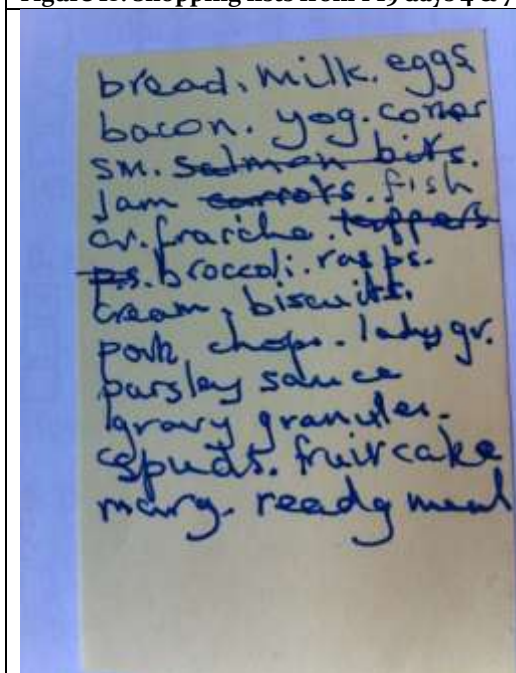 bread. milk. eggs
bacon. yog. corner
sm. salmon bits.
Jam carrots. fish
cr. fraiche.
ps. broccoli. rasps.
cream. biscuits.
pork chops. lady gr.
parsley sauce
gravy granules.
spuds. fruit cake
marg. ready meal